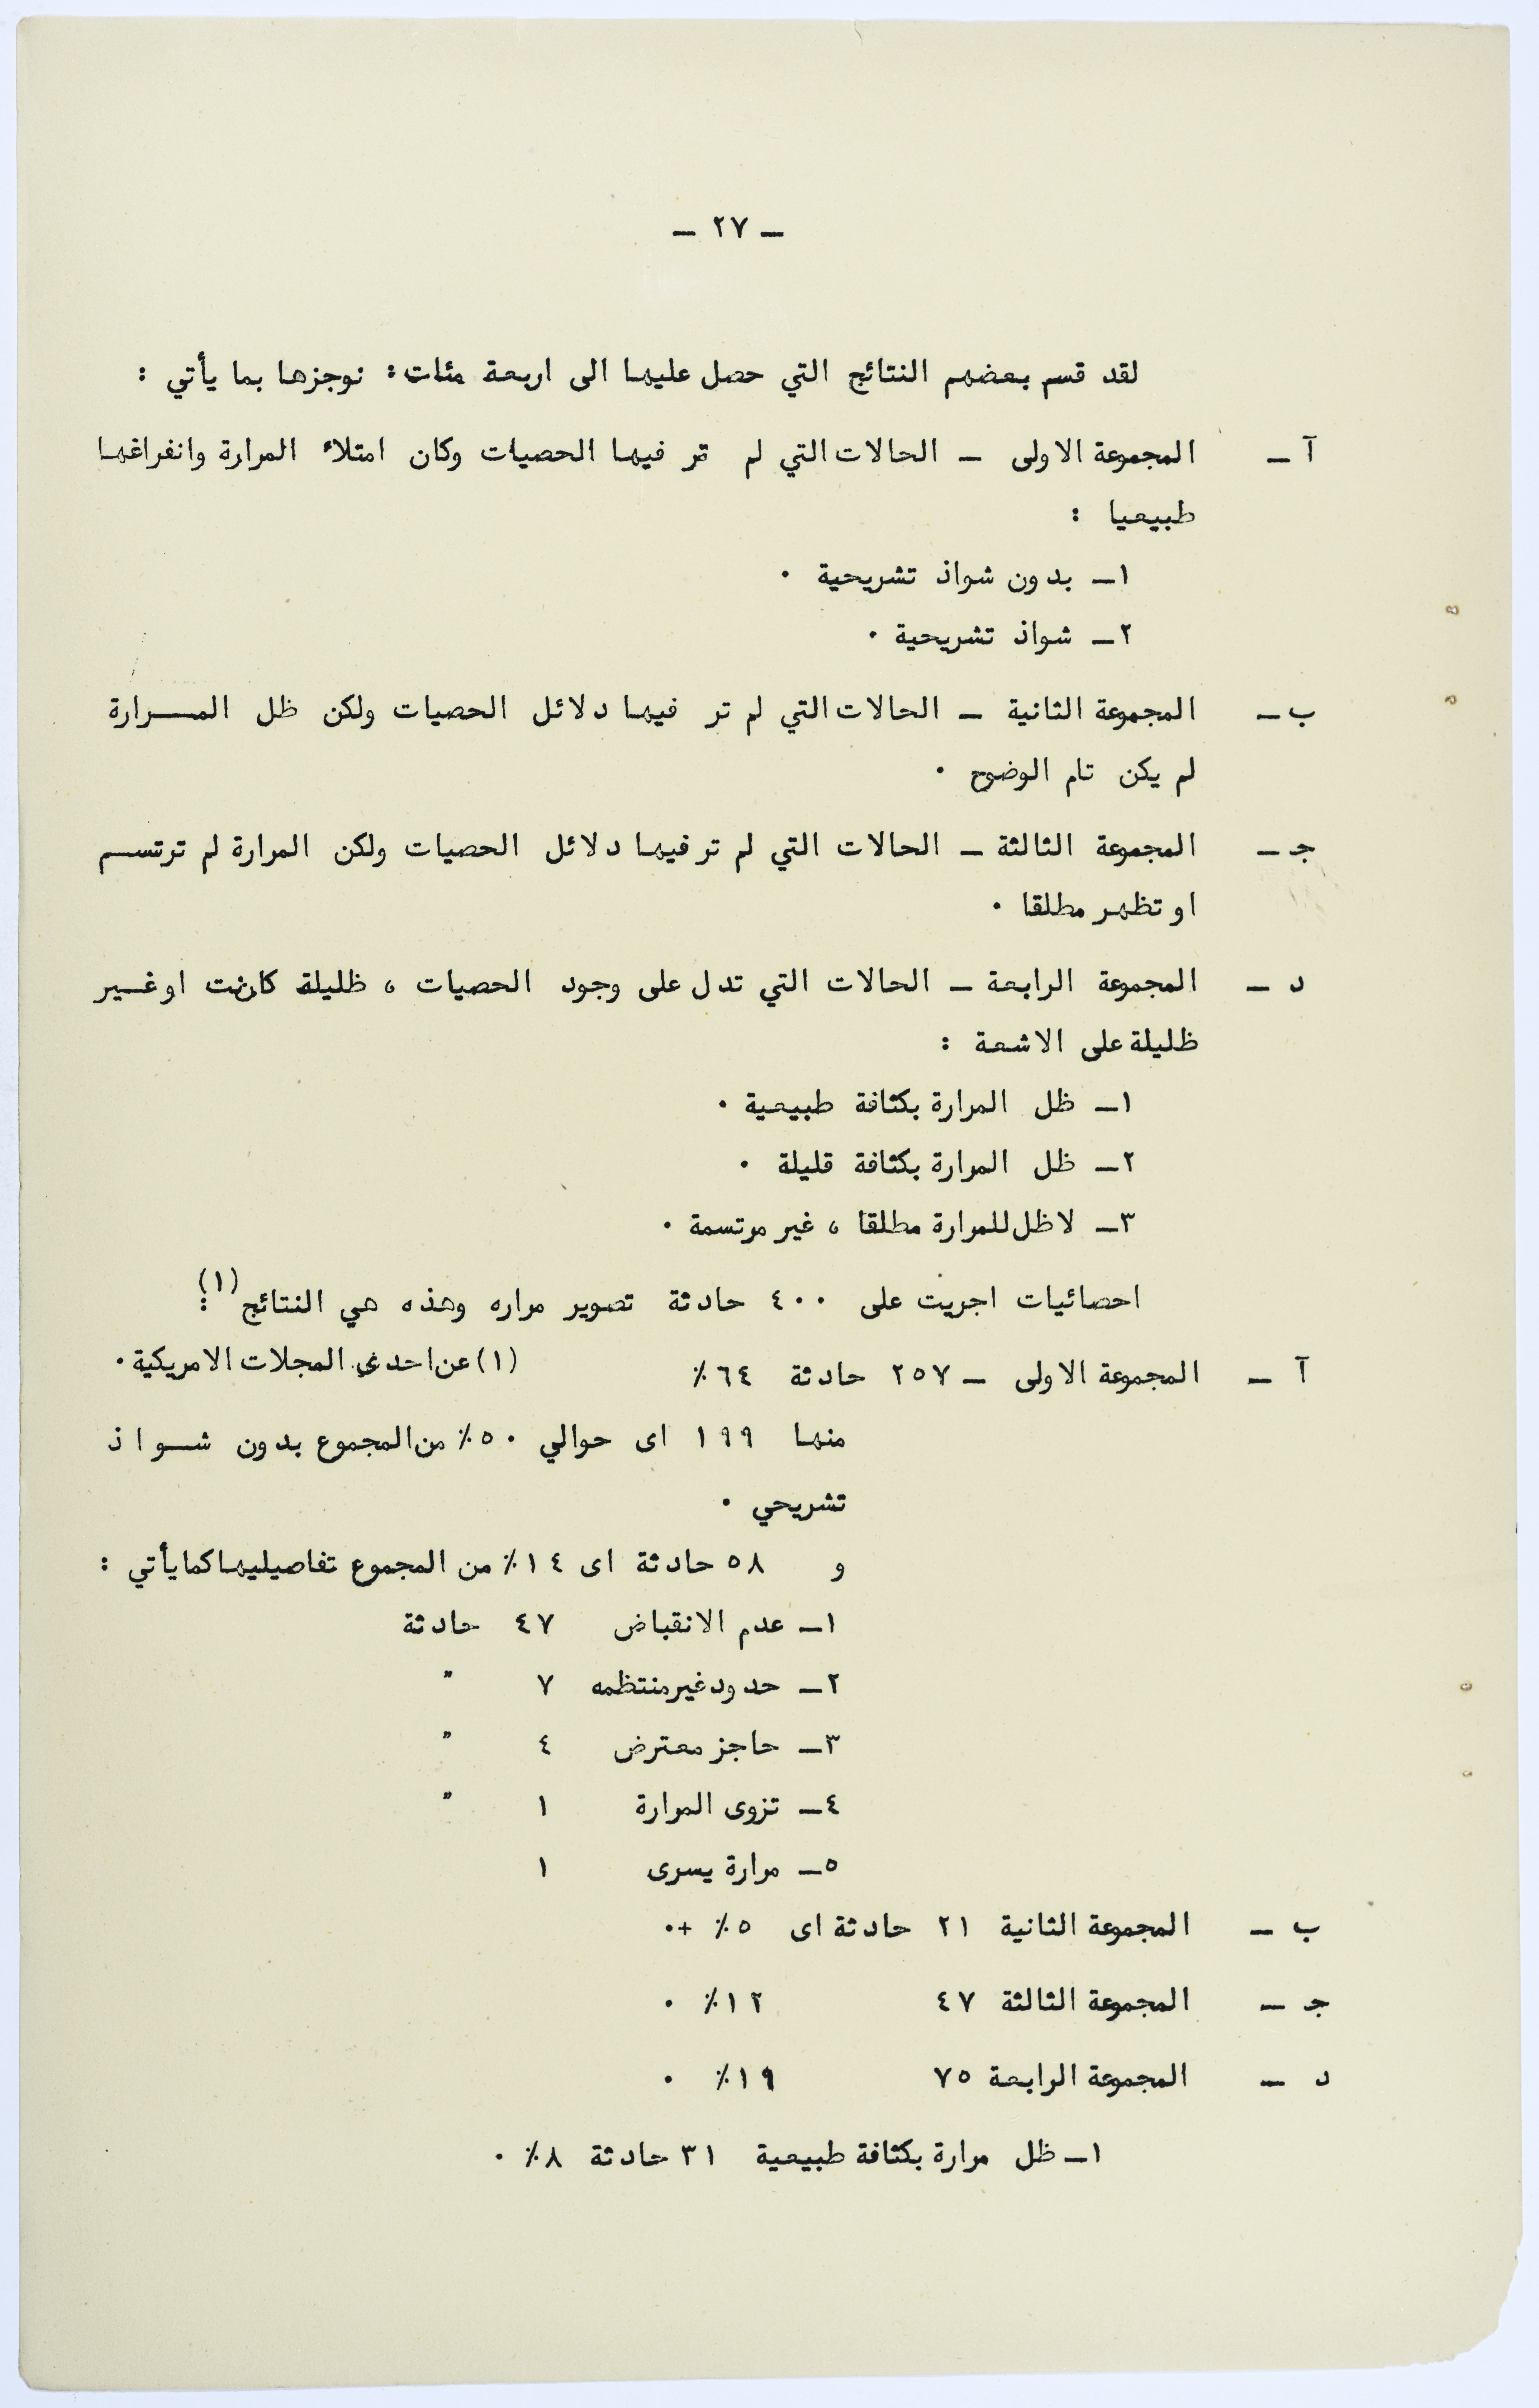 ـ ٢٧ ـ
لقد قسم بعضهم النتائج التي حصل عليها الى اربعة مئات : نوجزها بما يأتي :
آ ـ المجموعة الاولى ـ الحالات التي لم تر فيها الحصيات وكان امتلاء المرارة وانفراغها
طبيعيا :
١ـ بدون شواذ تشريحية .
٢ـ شواذ تشريحية .
ب ـ المجموعة الثانية ـ الحالات التي لم تر فيها دلائل الحصيات ولكن ظل المـــرارة
لم يكن تام الوضوح .
جـ ـ المجموعة الثالثة ـ الحالات التي لم تر فيها دلائل الحصيات ولكن المرارة لم ترتســم
او تظهر مطلقا .
د ـ المجموعة الرابعة ـ الحالات التي تدل على وجود الحصيات ، ظليلة كانت او غــير
ظليلة على الاشعة :
١ـ ظل المرارة بكثافة طبيعية .
٢ـ ظل المرارة بكثافة قليلة .
٣ـ لا ظل للمرارة مطلقا ، غير مرتسمة .
احصائيات اجريت على ٤٠٠ حادثة تصوير مراره وهذه هي النتائج (١) :
(١) عن احدى المجلات الامريكية .
آ ـ المجموعة الاولى ـ ٢٥٧ حادثة ٦٤٪
منها ١٩٩ اى حوالي ٥٠٪ من المجموع بدون شــواذ
تشريحي .
و ٥٨ حادثة اى ١٤٪ من المجموع تفاصيليها كما يأتي :
١ـ عدم الانقباض ٤٧ حادثة
٢ـ حدود غير منتظمه ٧ "
٣ـ حاجز معترض ٤ "
٤ـ تزوى المرارة ١ "
٥ـ مرارة يسرى ١
ب ـ المجموعة الثانية ٢١ حادثة اى ٥٪ +.
جـ ـ المجموعة الثالثة ٤٧ ١٢٪ .
د ـ المجموعة الرابعة ٧٥ ١٩٪ .
١ـ ظل مرارة بكثافة طبيعية ٣١ حادثة ٨٪ .